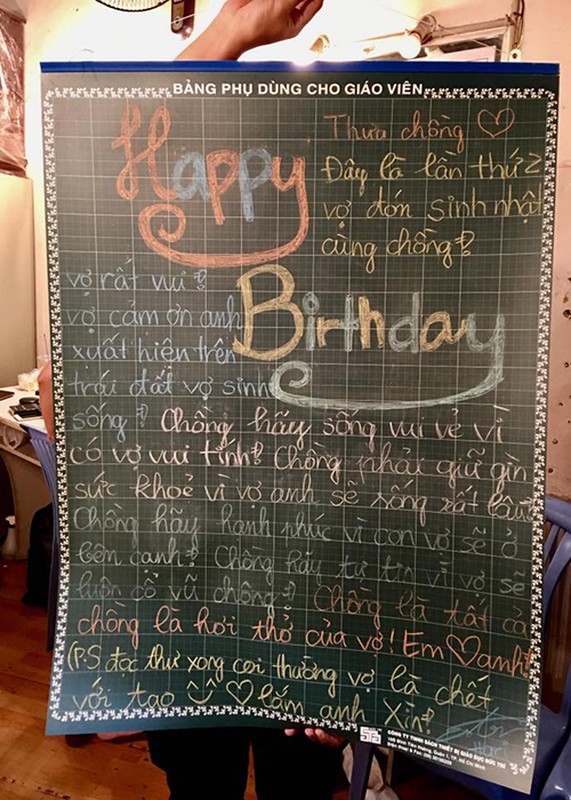 BẢNG PHỤ DÙNG CHO GIÁO VIÊN
Happy
Thưa chồng
Đây là lần thứ 2
vợ đón sinh nhật
cùng chồng!
Birthday
vợ rất vui!
vợ cảm ơn anh
xuất hiện trên
trái đất vợ sinh
sống! Chồng hãy sống vui vẻ vì
có vợ vui tính! Chồng phải giữ gìn
sức khoẻ vì vợ anh sẽ sống rất lâu!
Chồng hãy hạnh phúc vì con vợ sẽ ở
bên cạnh! Chồng hãy tự tin vì vợ sẽ
luôn cổ vũ chồng! Chồng là tất cả
chồng là hơi thở của vợ! Em ♡ anh!
(P.S đọc thư xong coi thường vợ là chết
với tao ♡ lắm anh Xìn!
Hari
CÔNG TY TNHH SÁCH THIẾT BỊ GIÁO DỤC ĐỨC TRÍ